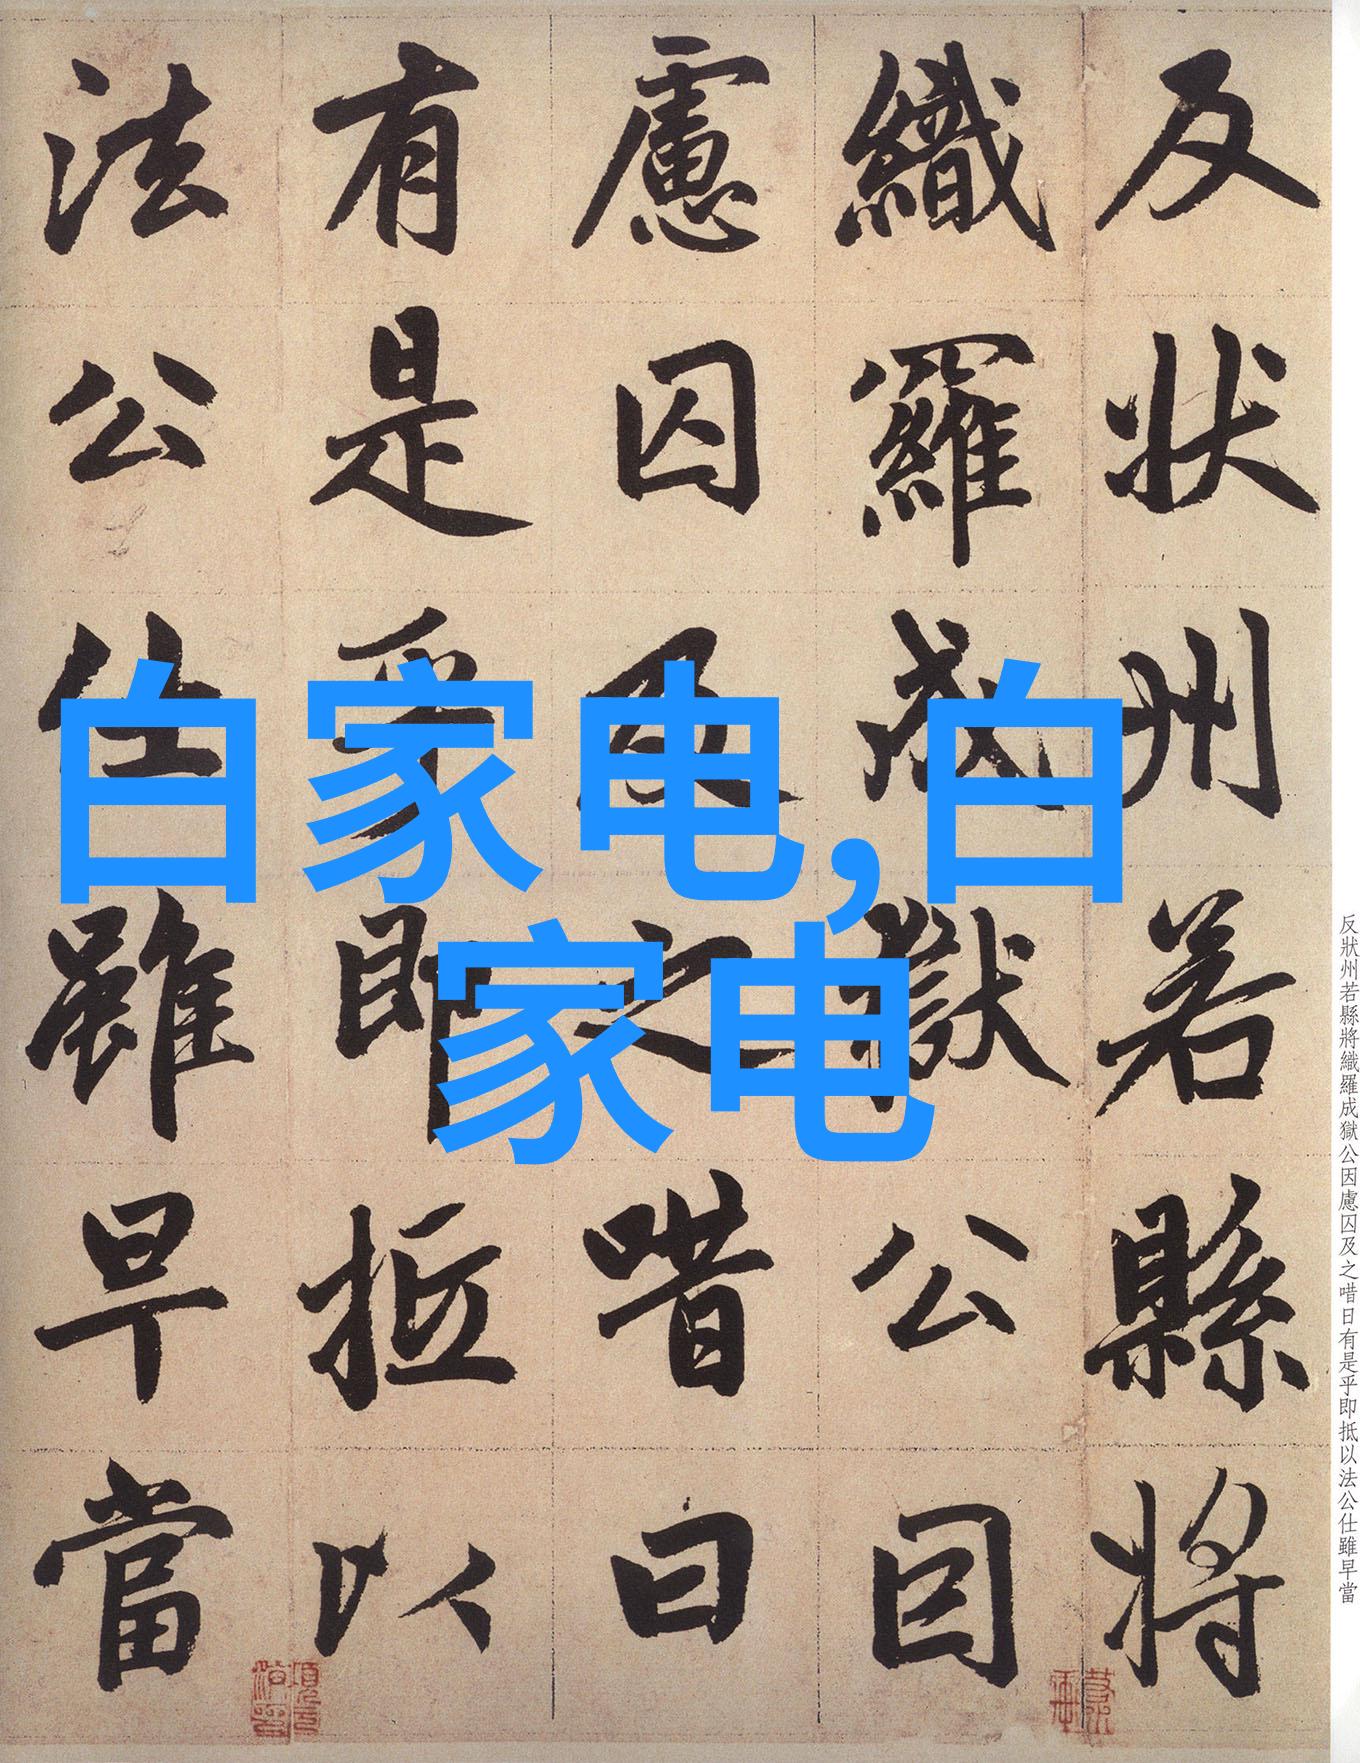 白家电,白
家电
反状州若縣将
織羅成獄公因
慮囚及之唶曰
有是乎即抵以
法公仕雖早當
反狀州若縣將織羅成獄公因慮囚及之唶日有是乎即抵以法公仕雖早當